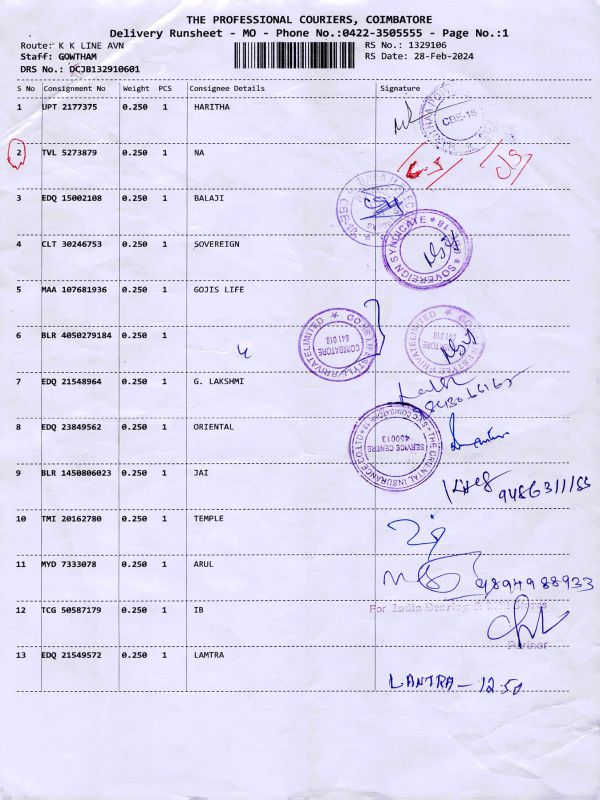 THE PROFESSIONAL COURIERS, COIMBATORE
Delivery Runsheet - MO - Phone No.:0422-3505555 - Page No.:1
Route: K K LINE AVN RS No.: 1329106
Staff: GOWTHAM RS Date: 28-Feb-2024
DRS No.: DCJB132910601
S No Consignment No Weight PCS Consignee Details Signature
1 UPT 2177375 0.250 1 HARITHA
CBE-18
2 TVL 5273879 0.250 1 NA
3 EDQ 15002108 0.250 1 BALAJI
4 CLT 30246753 0.250 1 SOVEREIGN
SOVEREIGN SYNDICATE * 18
5 MAA 107681936 0.250 1 GOJIS LIFE
6 BLR 4050279184 0.250 1
PRIVATE LIMITED
COIMBATORE
641 018
7 EDQ 21548964 0.250 1 G. LAKSHMI
8 EDQ 23849562 0.250 1 ORIENTAL
THE ORIENTAL INSURANCE CO.LTD
SERVICE CENTRE
450013
COIMBATORE
9 BLR 1450806023 0.250 1 JAI
9486311155
10 TMI 20162780 0.250 1 TEMPLE
11 MYD 7333078 0.250 1 ARUL
9894988933
12 TCG 50587179 0.250 1 IB
For India Bearing & Mill Stores
Partner
13 EDQ 21549572 0.250 1 LAMTRA
LANTRA - 12.50